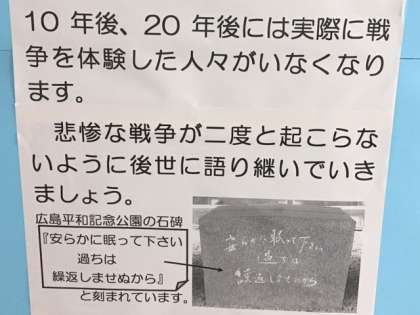 10 年後、20 年後には実際に戦
争を体験した人々がいなくなり
ます。
悲惨な戦争が二度と起こらな
いように後世に語り継いでいき
ましょう。
広島平和記念公園の石碑
『安らかに眠って下さい
過ちは
繰返しませぬから』
と刻まれています。
安らかに眠って下さい
過ちは
繰返しませぬから